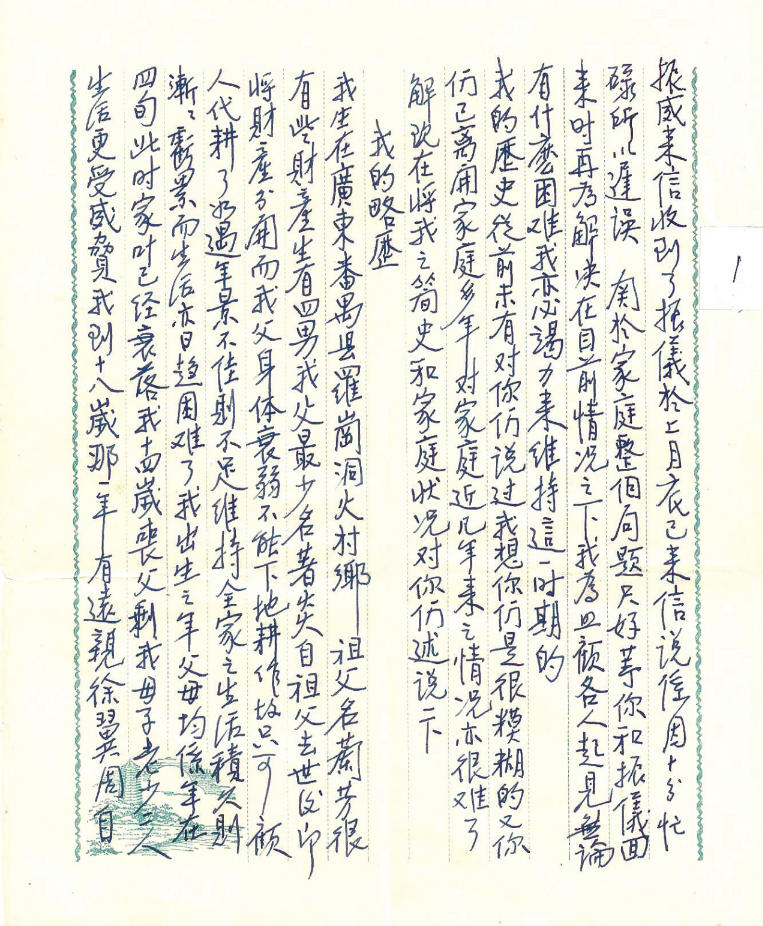 振威来信收到了振儀於上月底已来信説但周十分忙
碌所以遲误 関於家庭整個问題只好等你和振儀回
来时再为解决在目前情况之下我為照顧各人起見無論
有什麼困难我亦必竭力来維持這一时期的
我的歷史從前未有对你们说过我想你们是很糢糊的又你
们已离開家庭多年对家庭近几年来之情况亦很难了
解现在将我之简史和家庭状况对你们述说一下
我的略歷
我生在廣東番禺县羅崗洞火村鄉 祖父名蘭芳很
有些财產生有四男我父最少名著炎自祖父去世後即
将财產分開而我父身体衰弱不能下地耕作故只可顧
人代耕了如遇年景不佳則不足維持全家之生活積久則
漸々虧累而生活亦日趋困难了我出生之年父母均係年在
四旬此时家叶已经衰落我十四嵗喪父剩我母子老少二人
生活更受威脅我到十八嵗那一年有遠親徐翼周自
1